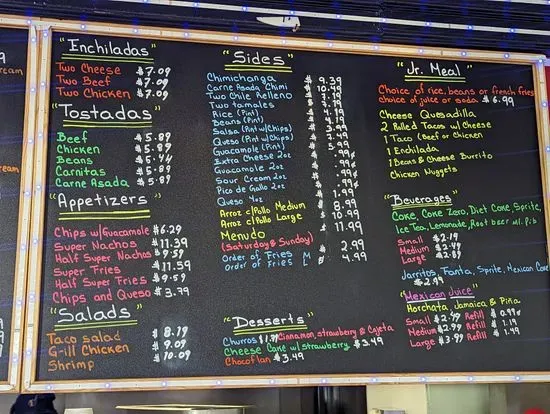 "Enchiladas"
Two Cheese $7.09
Two Beef $7.09
Two Chicken $7.09
"Tostadas"
Beef $5.89
Chicken $5.89
Beans $5.44
Carnitas $5.89
Carne Asada $5.89
"Appetizers"
Chips w/Guacamole $6.29
Super Nachos $11.39
Half Super Nachos $9.59
Super Fries $11.59
Half Super Fries $9.59
Chips and Queso $3.79
"Salads"
Taco salad $8.19
G-ill Chicken $9.09
Shrimp $10.09
"Sides"
Chimichanga $9.39
Carne Asada Chimi $10.49
Two Chile Relleno
Two tamales
Rice (Pint)
Beans (Pint)
Salsa (Pint w/Chips)
Queso (Pint w/Chips)
Guacamole (Pint)
Extra Cheese 2oz .99¢
Guacamole 2oz .99¢
Sour Cream 2oz .99¢
Pico de Gallo 2oz .99¢
Queso 4oz 1.99
Arroz c/Pollo Medium 8.99
Arroz c/Pollo Large 10.99
Menudo 11.99
(Saturday & Sunday)
Order of Fries M 2.99
Order of Fries L 4.99
"Desserts"
Churros $1.79 Cinnamon, strawberry & Cajeta
Cheese Cake w/strawberry $3.49
Chocoflan $3.49
"Jr. Meal"
Choice of rice, beans or french fries
choice of juice or soda. $6.99
Cheese Quesadilla
2 Rolled Tacos w/Cheese
1 Taco (Beef or Chicken)
1 Enchilada
1 Beans & Cheese Burrito
Chicken Nuggets
"Beverages"
Coke, Coke Zero, Diet Coke, Sprite,
Ice Tea, Lemonade, Root beer
Small $2.19
Medium $2.49
Large $2.89
Jarritos, Fanta, Sprite, Mexican Coke
$2.99
"Mexican Juice"
Horchata, Jamaica & Piña
Small $2.49 Refill $0.99¢
Medium $2.99 Refill $1.19
Large $3.99 Refill $1.49